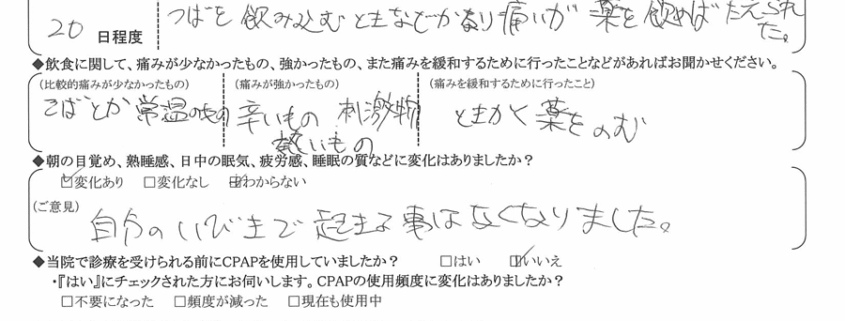 つばを飲み込む ときなどかなり痛いが 薬を飲めばたえられ
20 日程度
た。
◆飲食に関して、痛みが少なかったもの、強かったもの、また痛みを緩和するために行ったことなどがあればお聞かせください。
(比較的痛みが少なかったもの) (痛みが強かったもの) (痛みを緩和するために行ったこと)
そばとか 常温のもの 辛いもの 刺激物 ときかく 薬をのむ
熱いもの
◆朝の目覚め、熟睡感、日中の眠気、疲労感、睡眠の質などに変化はありましたか?
☑変化あり □変化なし □わからない
(ご意見)
自分のいびきで 起きる事はなくなりました。
◆当院で診療を受けられる前にCPAPを使用していましたか? □はい ☑いいえ
・『はい』にチェックされた方にお伺いします。CPAPの使用頻度に変化はありましたか?
□不要になった □頻度が減った □現在も使用中